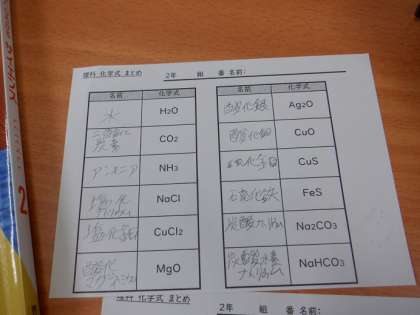 理科 化学式 まとめ 2年 組 番 名前:
名前 化学式
水 H2O
二酸化
炭素 CO2
アンモニア NH3
塩化
ナトリウム NaCl
塩化銅 CuCl2
酸化
マグネシウム MgO
名前 化学式
酸化銀 Ag2O
酸化銅 CuO
硫化銅 CuS
硫化鉄 FeS
炭酸ナトリウム Na2CO3
炭酸水素
ナトリウム NaHCO3
理科 化学式 まとめ 2年 組 番 名前:
2